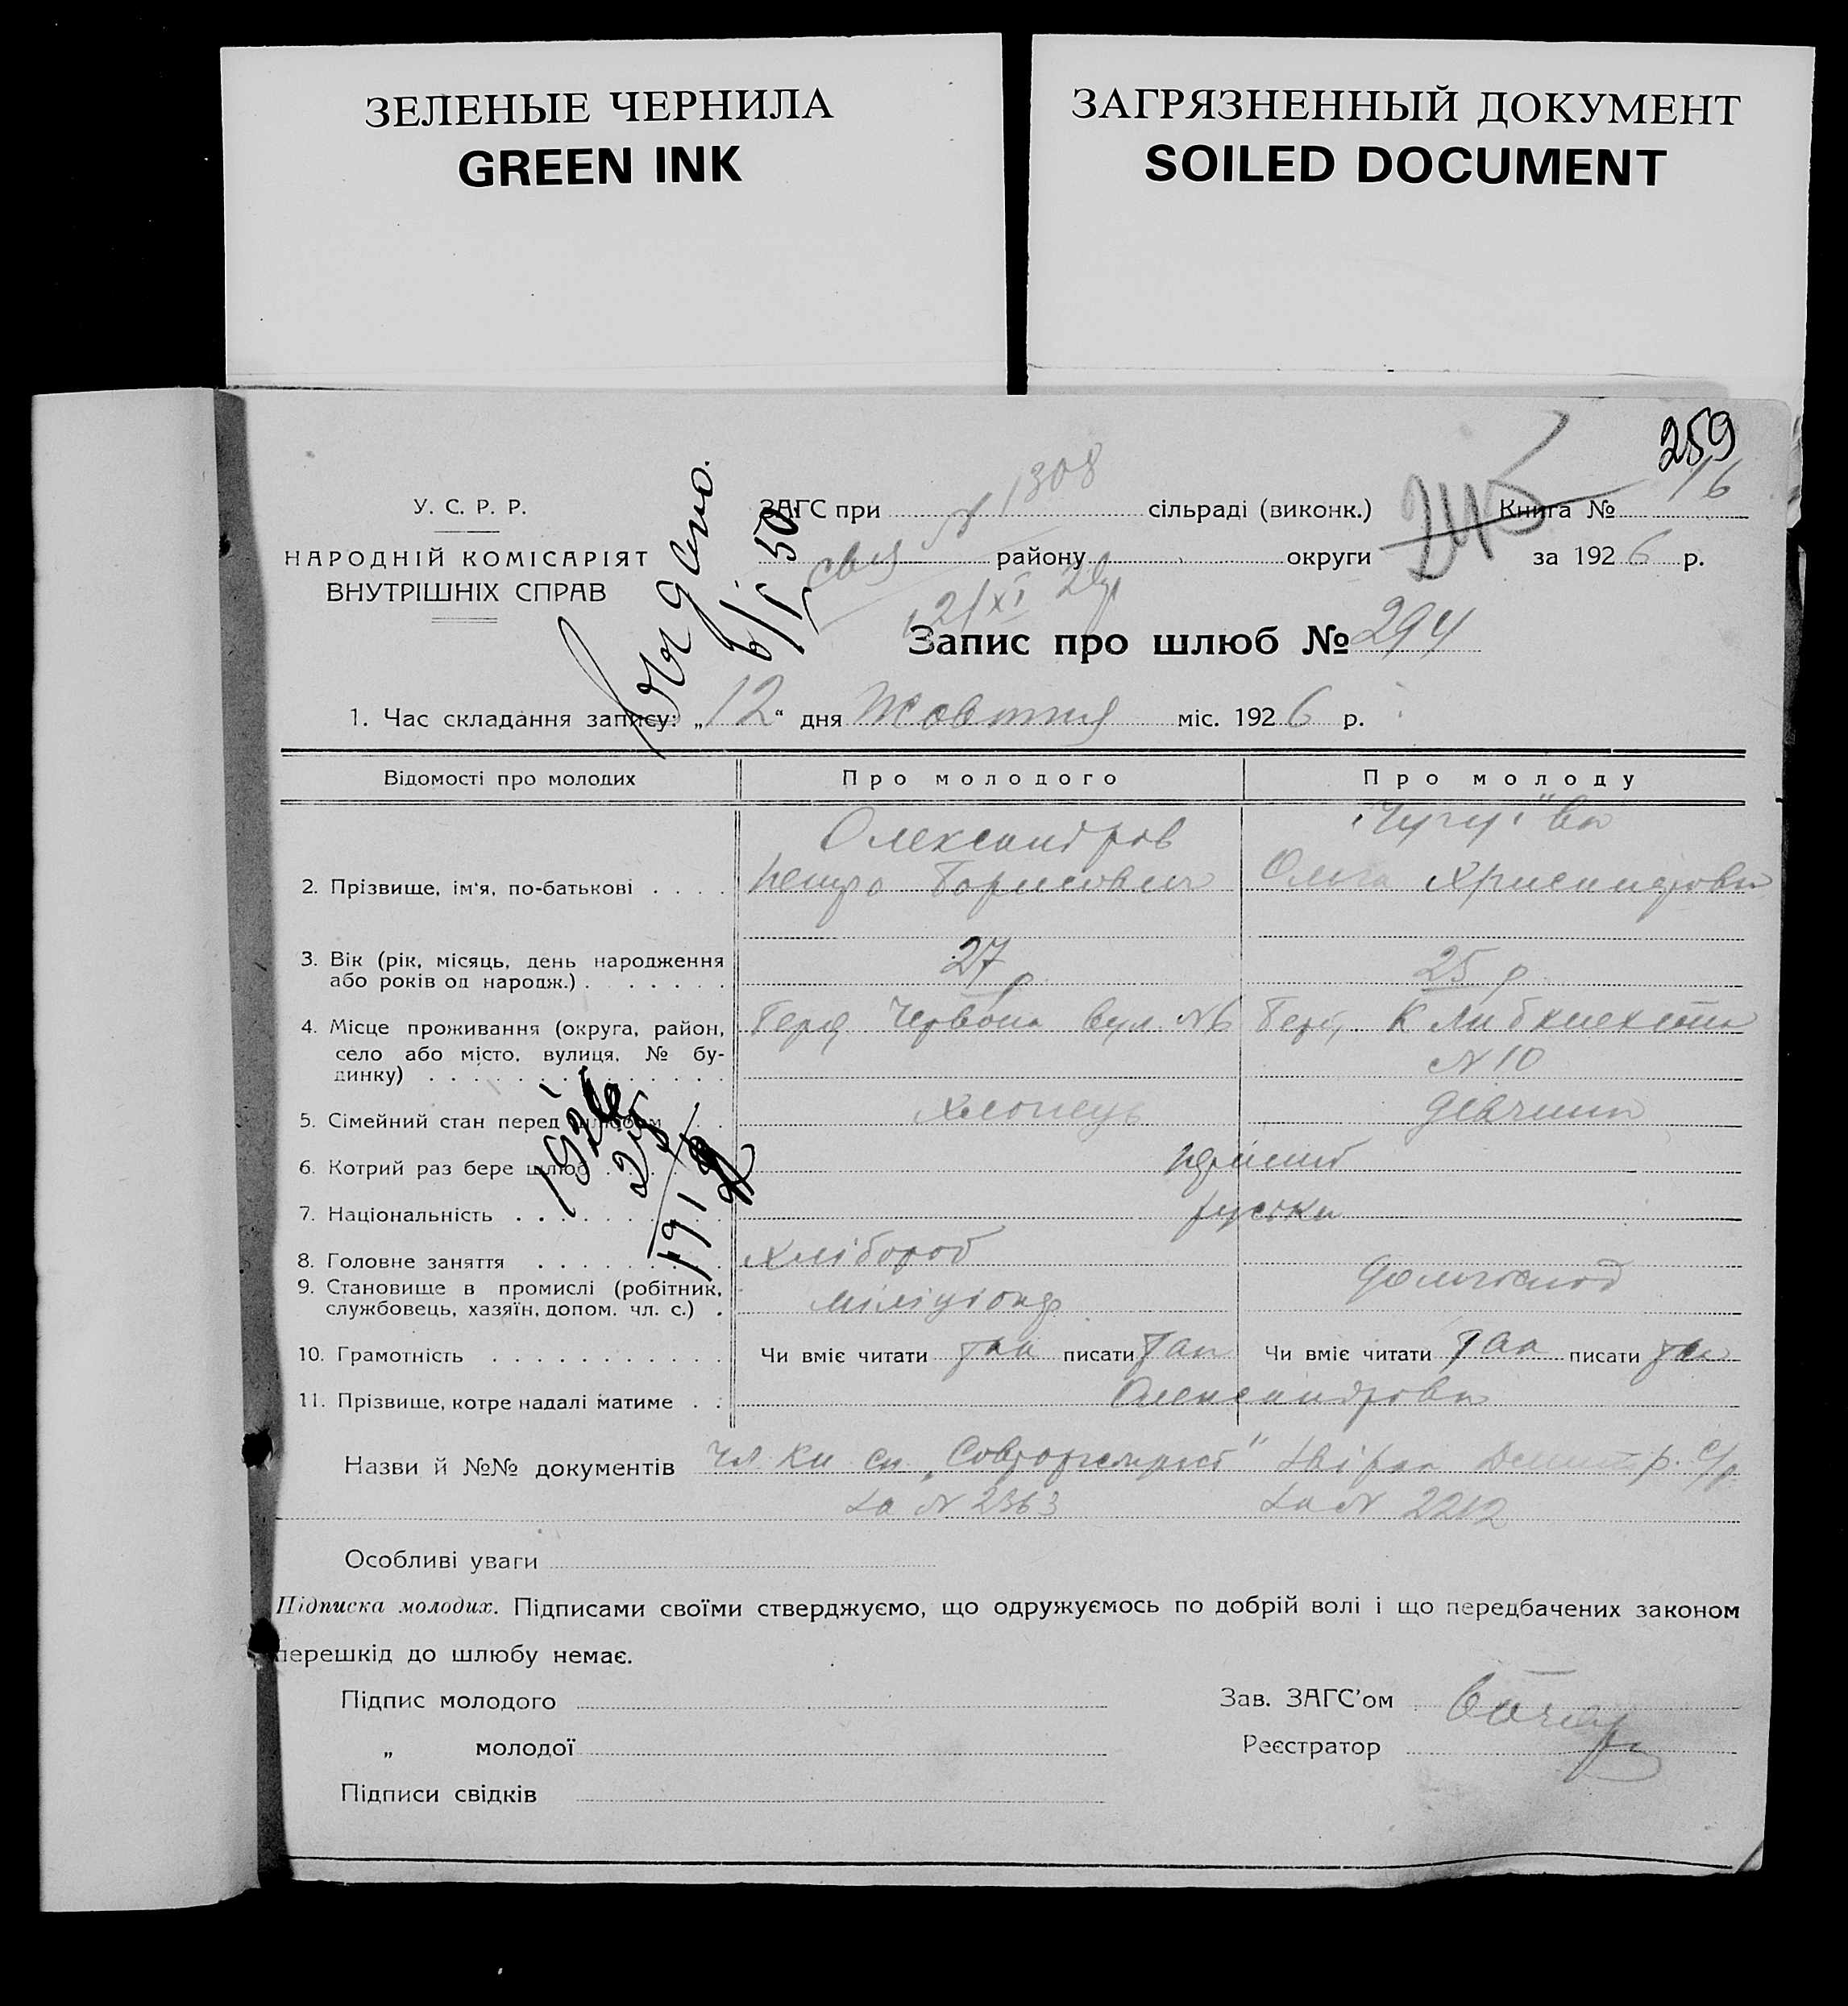 ЗЕЛЕНЫЕ ЧЕРНИЛА
GREEN INK
ЗАГРЯЗНЕННЫЙ ДОКУМЕНТ
SOILED DOCUMENT
259
16
У. С. Р. Р.
НАРОДНІЙ КОМІСАРІЯТ
ВНУТРІШНІХ СПРАВ
ЗАГС при № 1308 сільраді (виконк.) Книга №
району округи за 1926 р.
21/XI
6/I 50.
Запис про шлюб № 294
1. Час складання запису: „12“ дня Жовтня міс. 1926 р.
Відомості про молодих Про молодого Про молоду
Олександров
2. Прізвище, ім'я, по-батькові Петро Борисович Ольга
3. Вік (рік, місяць, день народження 27 р 25 р
або років од народж.)
4. Місце проживання (округа, район, Червона вул. №6 К Либкнехта
село або місто, вулиця, № бу- №10
динку)
5. Сімейний стан перед шлюбом хлопець дівчина
6. Котрий раз бере шлюб перший
7. Національність руські
8. Головне заняття хлібороб
9. Становище в промислі (робітник, міліціонер домогоспод
службовець, хазяїн, допом. чл. с.)
10. Грамотність Чи вміє читати так писати так Чи вміє читати так писати так
11. Прізвище, котре надалі матиме Олександрови
1926
25
Назви й №№ документів Чл. кн сп. Дмитр. с/р
за № 2363 за № 2212
Особливі уваги
Підписка молодих. Підписами своїми стверджуємо, що одружуємось по добрій волі і що передбачених законом
перешкід до шлюбу немає.
Підпис молодого Зав. ЗАГС'ом
„ молодої Реєстратор
Підписи свідків